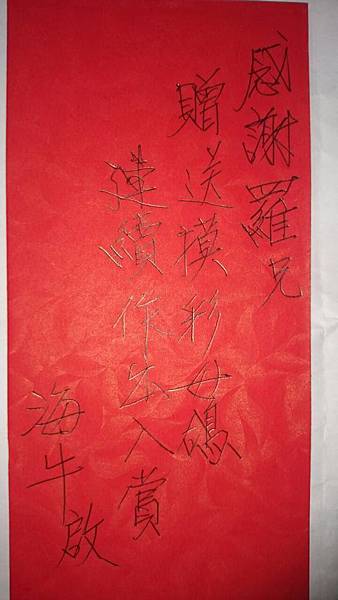 感謝羅兄
贈送摸彩女鴿
連續作出入賞
海牛啟